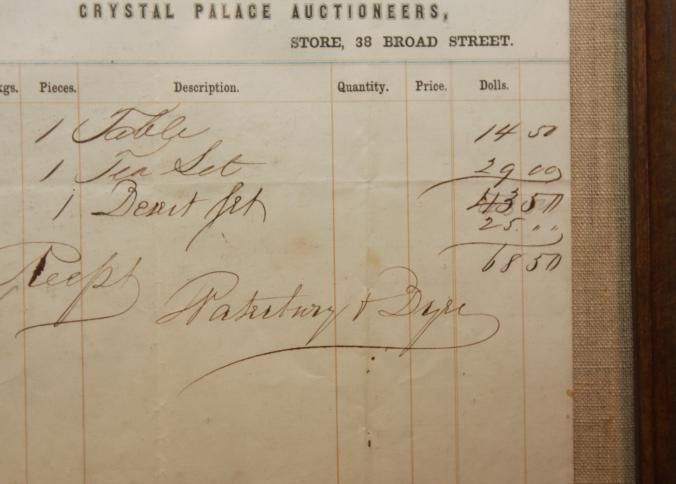 CRYSTAL PALACE AUCTIONEERS,
STORE, 38 BROAD STREET.
kgs. Pieces. Description. Quantity. Price. Dolls.
1 Table 14 50
1 Tea Set 29 00
43 50
1 Desert Set 25 "
68 50
Waterbury & Dyre